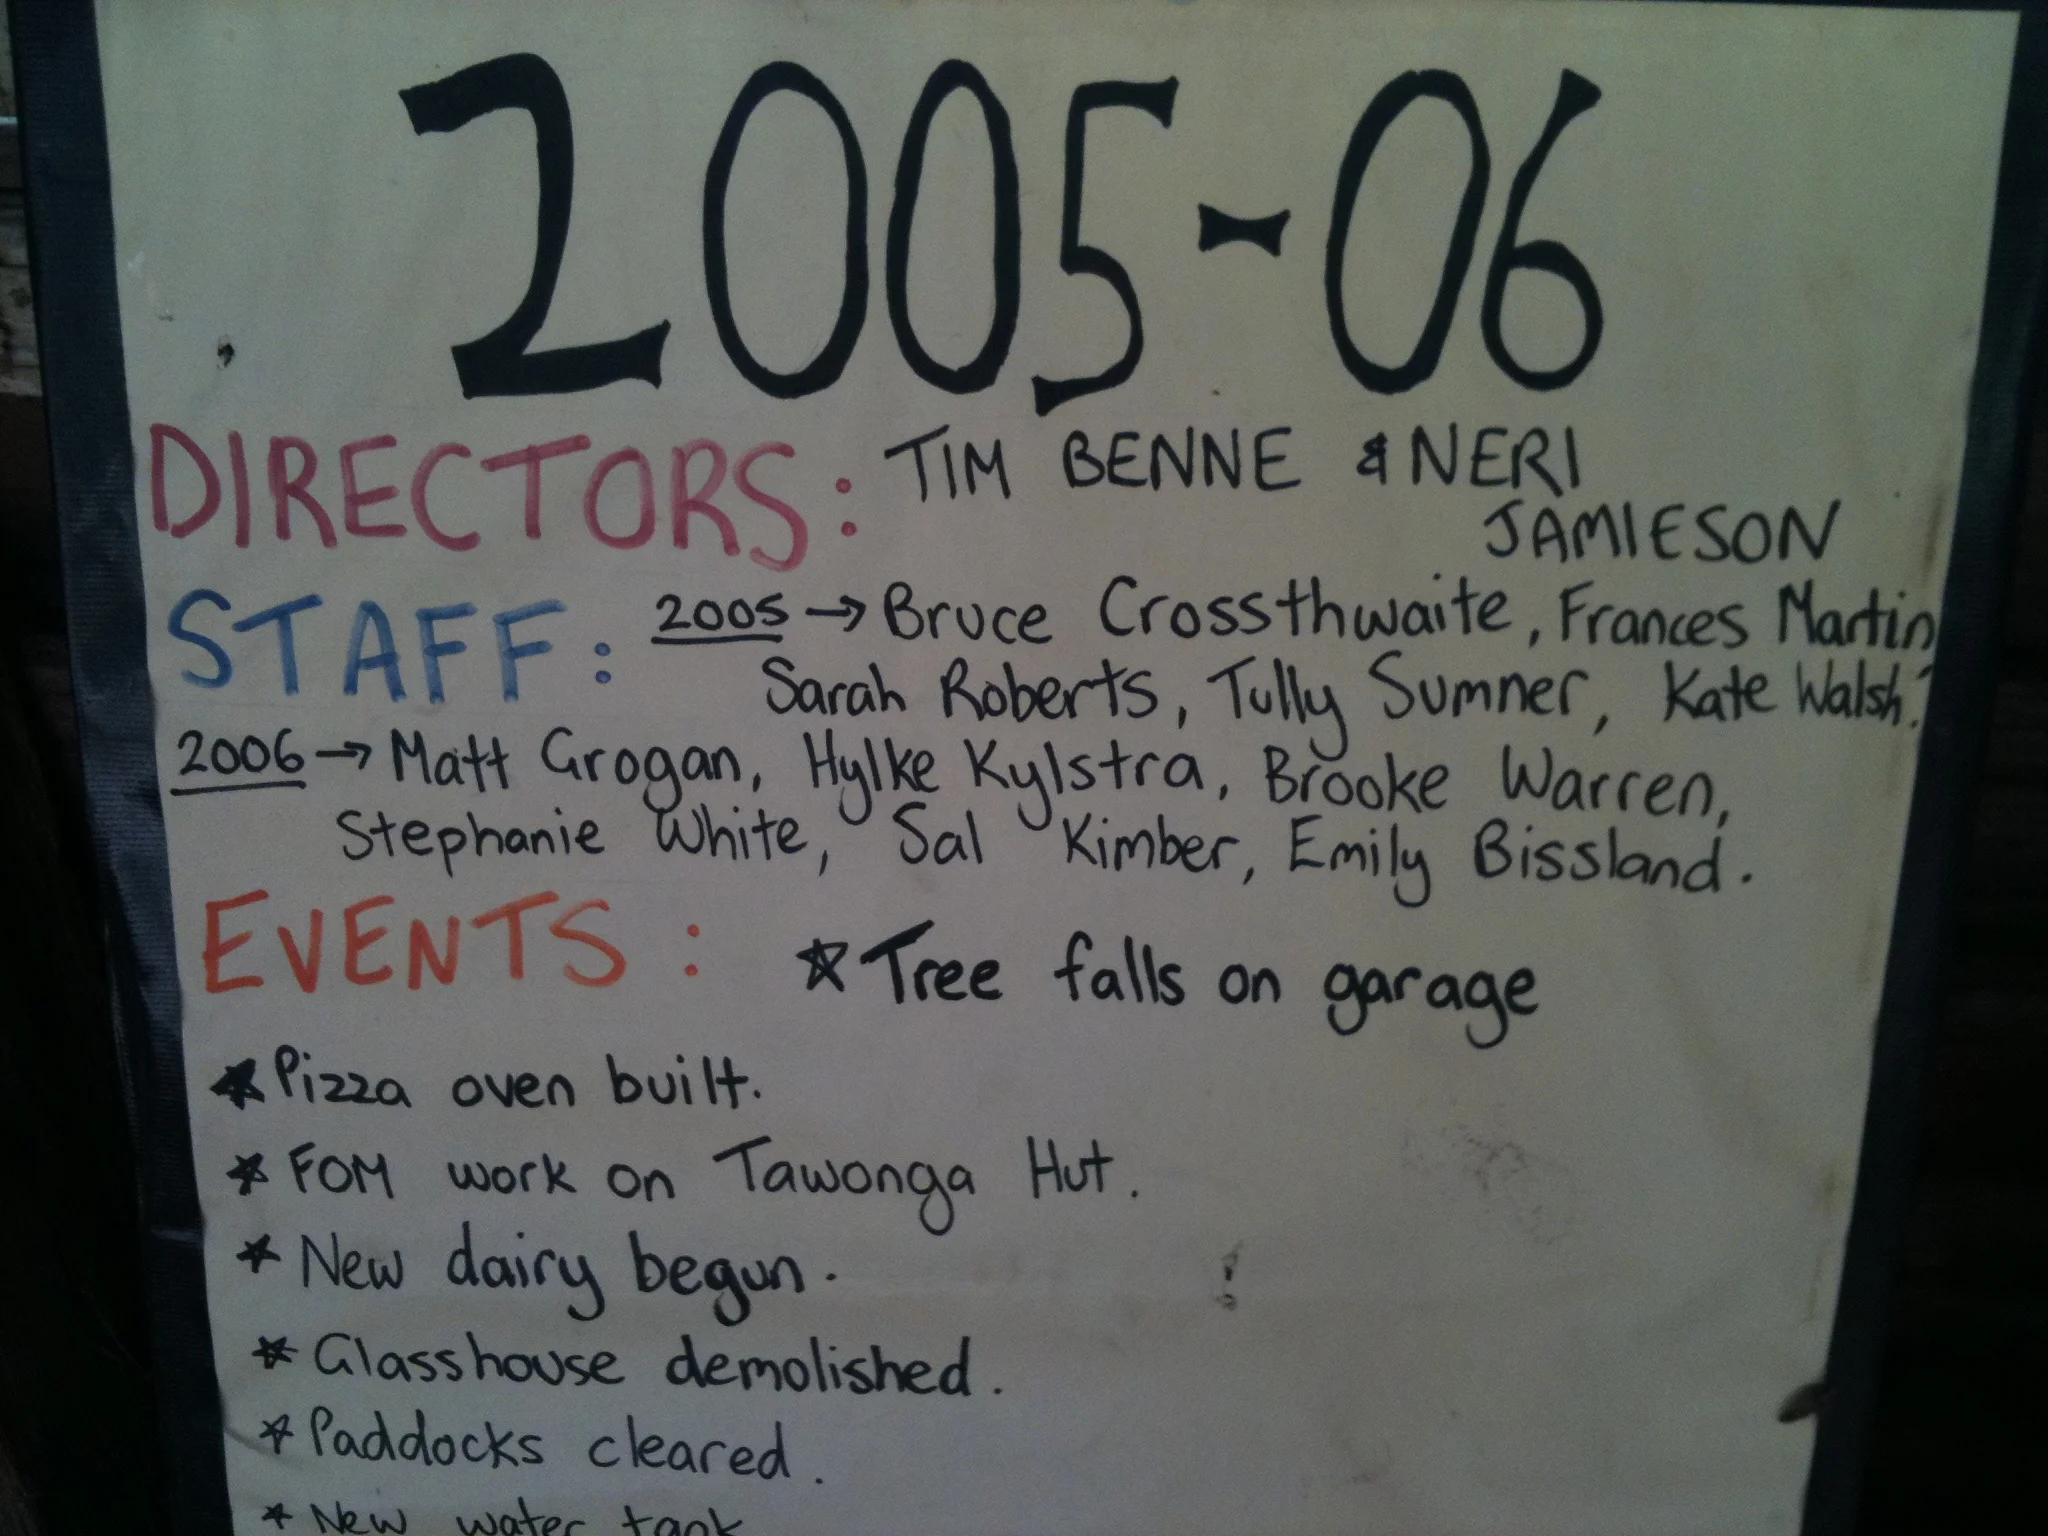 2005-06
DIRECTORS: TIM BENNE & NERI
JAMIESON
STAFF: 2005 → Bruce Crossthwaite, Frances Martin
Sarah Roberts, Tully Sumner, Kate Walsh.
2006 → Matt Grogan, Hylke Kylstra, Brooke Warren,
Stephanie White, Sal Kimber, Emily Bissland.
EVENTS: ☆ Tree falls on garage
★ Pizza oven built.
★ FOM work on Tawonga Hut.
★ New dairy begun.
★ Glasshouse demolished.
★ Paddocks cleared.
★ New water tank